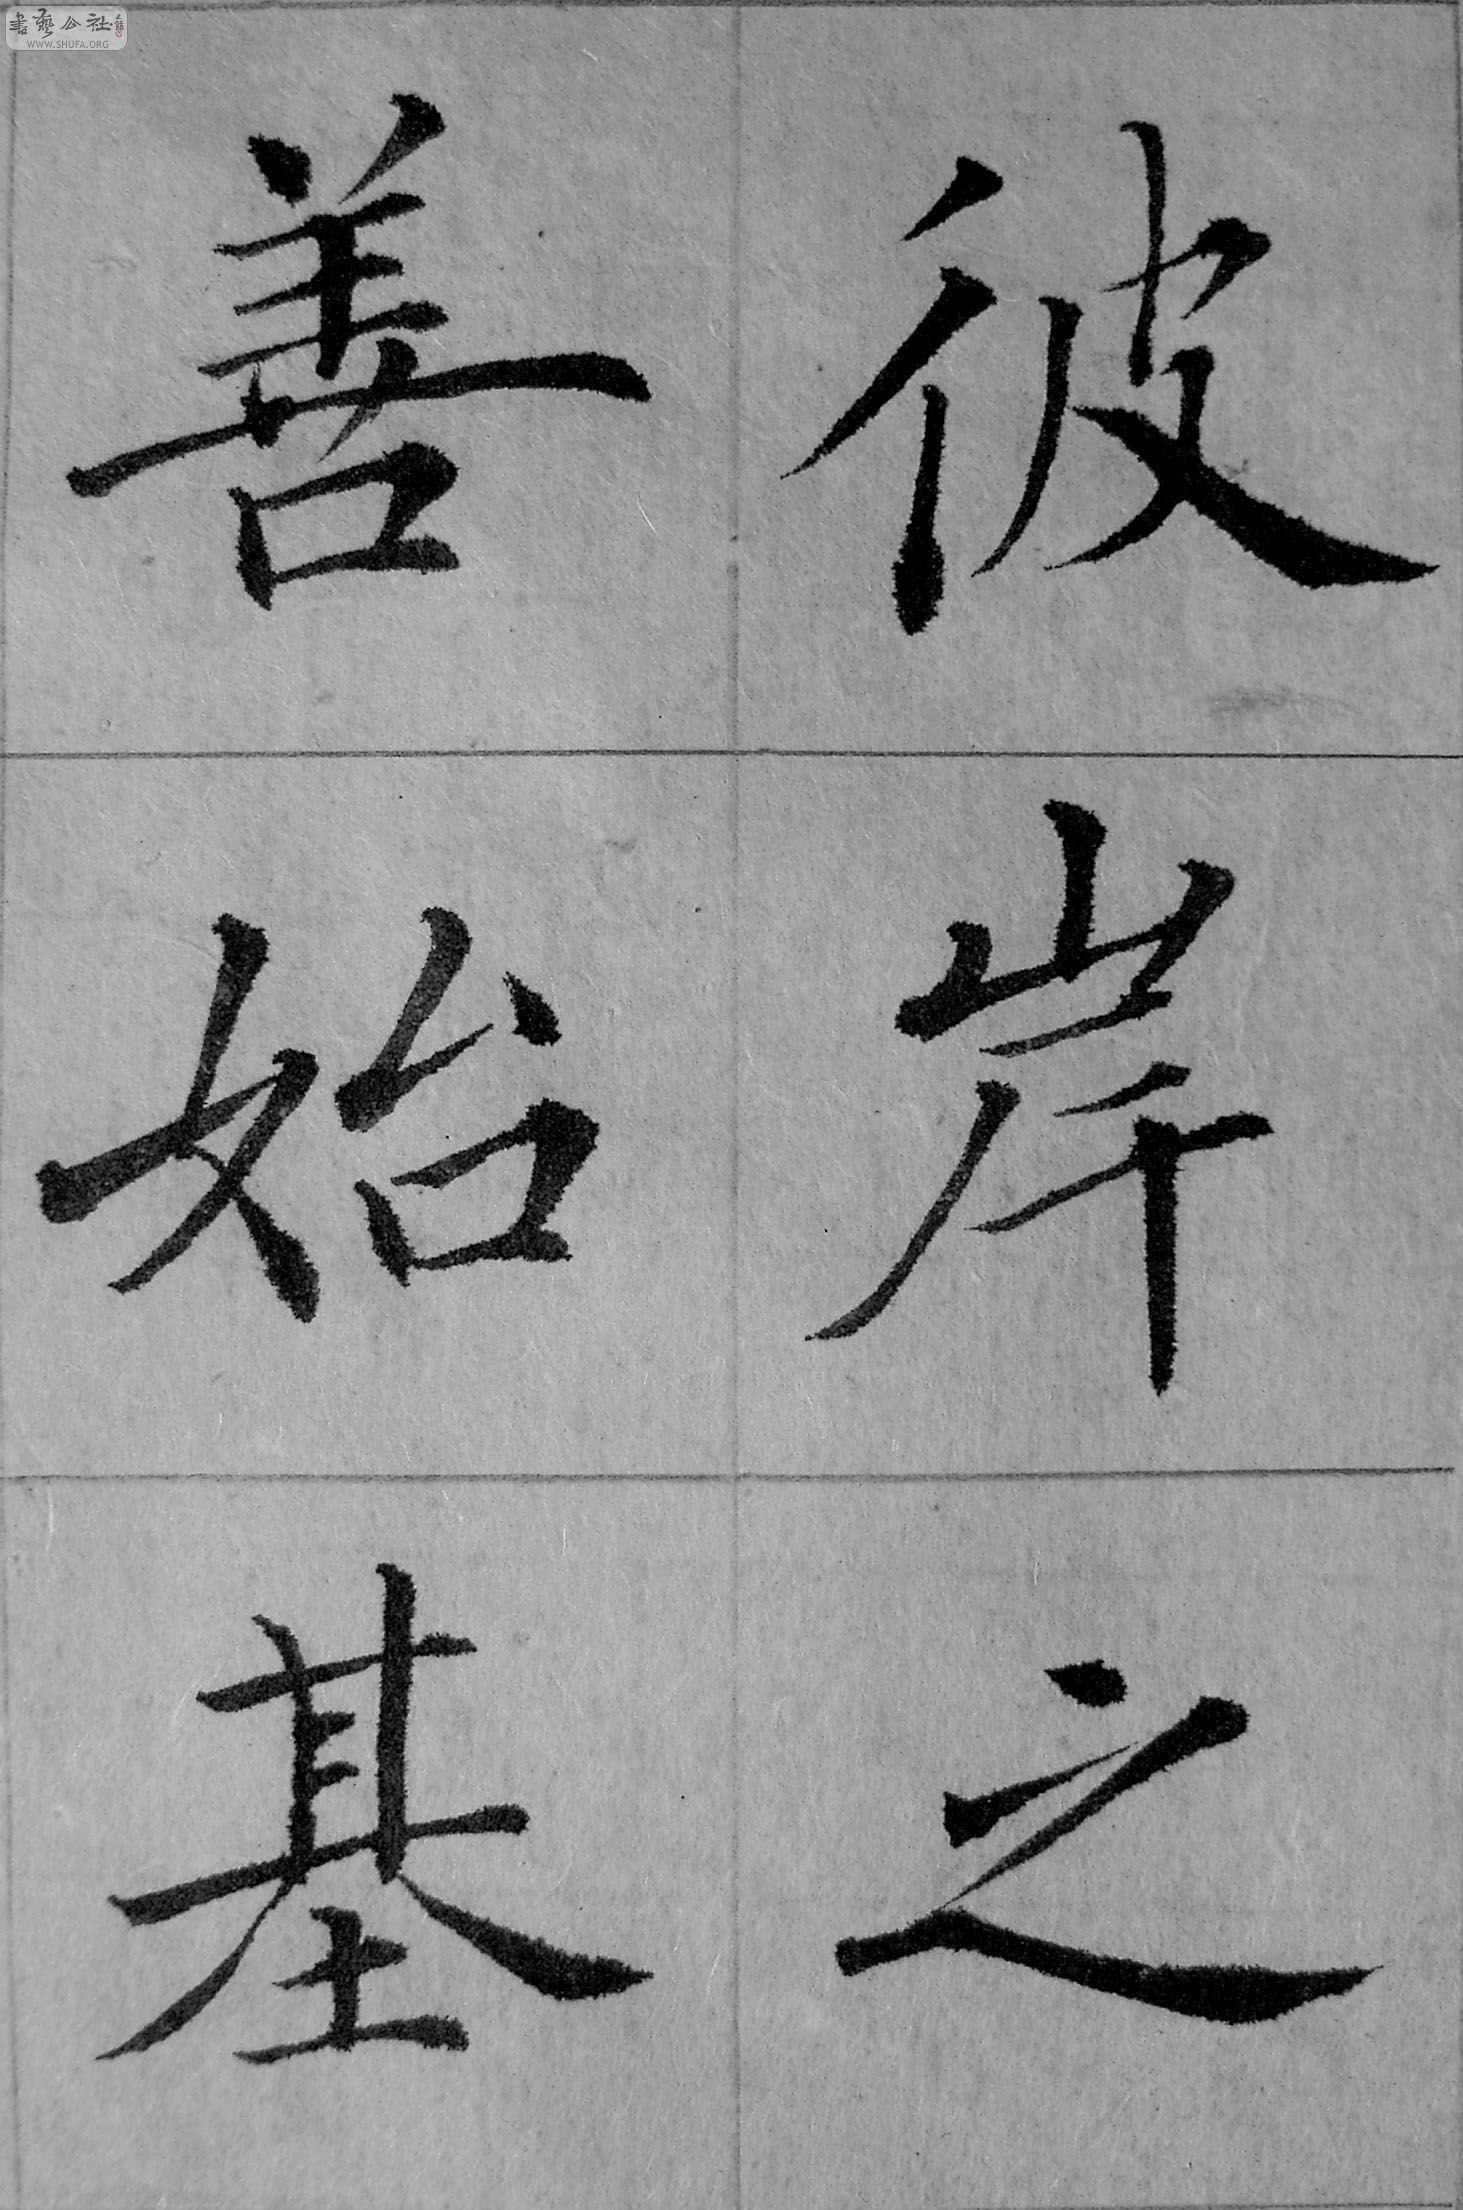 彼岸之
善始基
書藝公社
WWW.SHUFA.ORG